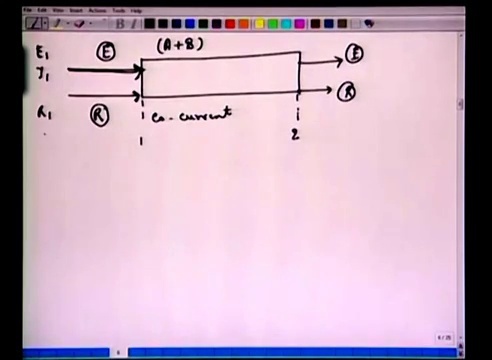 File Edit View Insert Actions Tools Help
E1 E (A+B) E
y1
R1 R co-current R
1 2